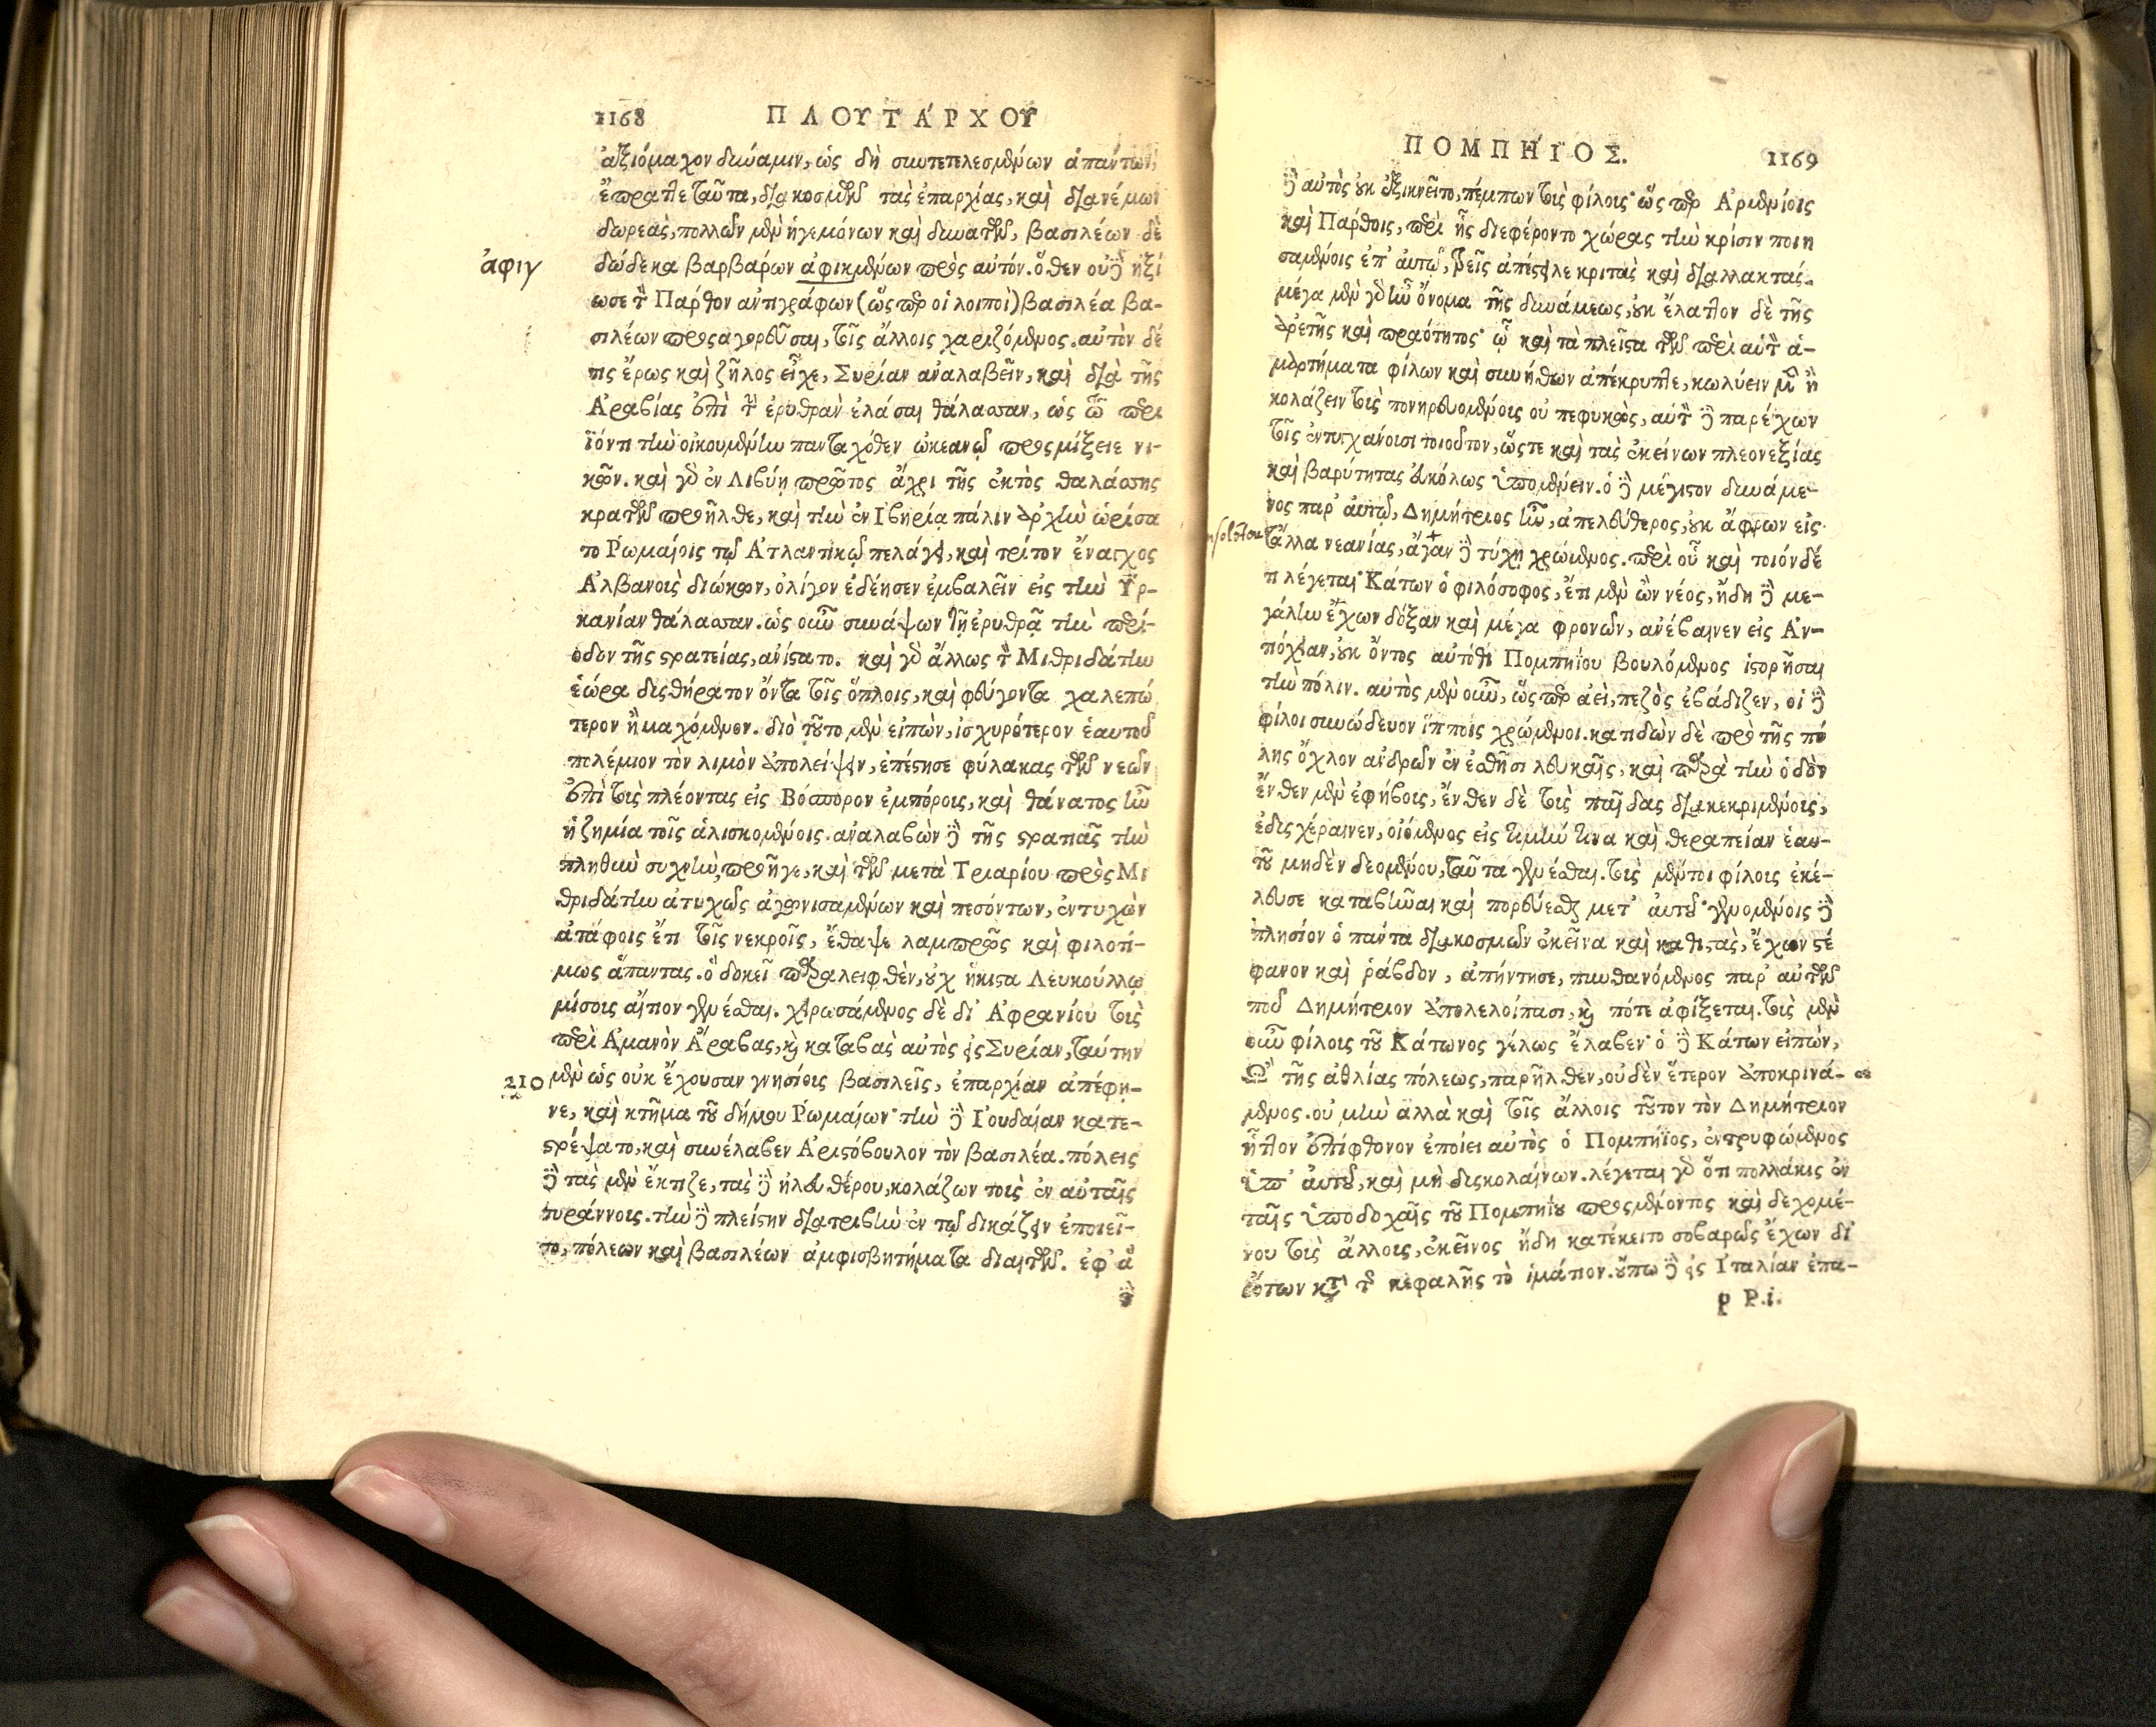 1168 ΠΛΟΥΤΑΡΧΟΥ
ἀξιόμαχον δύναμιν, ὡς δὴ συντετελεσμένων ἁπάντων,
ἔπραττε ταῦτα, διακοσμῶν τὰς ἐπαρχίας, καὶ διανέμων
δωρεὰς, πολλῶν μὲν ἡγεμόνων καὶ δυνατῶν, βασιλέων δὲ
ἀφιγ
δώδεκα βαρβάρων ἀφικμένων πρὸς αὐτόν. ὅθεν οὐδὲ ἠξί
ωσε τὸν Πάρθον ἀντιγράφων (ὥσπερ οἱ λοιποὶ) βασιλέα βα-
σιλέων προσαγορεῦσαι, τοῖς ἄλλοις χαριζόμενος. αὐτὸν δέ
τις ἔρως καὶ ζῆλος εἶχε, Συρίαν ἀναλαβεῖν, καὶ διὰ τῆς
Ἀραβίας ἐπὶ τὴν ἐρυθρὰν ἐλάσαι θάλασσαν, ὡς τῷ περι
ϊόντι τὴν οἰκουμένην πανταχόθεν ὠκεανῷ προσμίξειε νι-
κῶν. καὶ γὰρ ἐν Λιβύῃ πρῶτος ἄχρι τῆς ἐκτὸς θαλάσσης
κρατῶν προῆλθε, καὶ τὴν ἐν Ἰβηρίᾳ πάλιν ἀρχὴν ὡρίσα
το Ῥωμαίοις τῷ Ἀτλαντικῷ πελάγει, καὶ τρίτον ἔναγχος
Ἀλβανοὺς διώκων, ὀλίγον ἐδέησεν ἐμβαλεῖν εἰς τὴν Ὑρ-
κανίαν θάλασσαν. ὡς οὖν συνάψων τῇ ἐρυθρᾷ τὴν περί-
οδον τῆς στρατείας, ἀνίστατο. καὶ γὰρ ἄλλως τὸν Μιθριδάτην
ἑώρα δυσθήρατον ὄντα τοῖς ὅπλοις, καὶ φεύγοντα χαλεπώ
τερον ἢ μαχόμενον. διὸ τοῦτο μὲν εἰπὼν, ἰσχυρότερον ἑαυτοῦ
πολέμιον τὸν λιμὸν ἀπολείψειν, ἐπέστησε φύλακας τῶν νεῶν
ἐπὶ τοὺς πλέοντας εἰς Βόσπορον ἐμπόρους, καὶ θάνατος ἦν
ἡ ζημία τοῖς ἁλισκομένοις. ἀναλαβὼν δὲ τῆς στρατιᾶς τὴν
πληθὺν συχνὴν, προῆγε, καὶ τῶν μετὰ Τριαρίου πρὸς Μι
θριδάτην ἀτυχῶς ἀγωνισαμένων καὶ πεσόντων, ἐντυχὼν
ἀτάφοις ἔτι τοῖς νεκροῖς, ἔθαψε λαμπρῶς καὶ φιλοτί-
μως ἅπαντας. ὃ δοκεῖ παραλειφθὲν, οὐχ ἥκιστα Λευκούλλῳ
μίσους αἴτιον γενέσθαι. χειρωσάμενος δὲ δι' Ἀφρανίου τοὺς
περὶ Ἀμανὸν Ἄραβας, καὶ καταβὰς αὐτὸς εἰς Συρίαν, ταύτην
210 μὲν ὡς οὐκ ἔχουσαν γνησίους βασιλεῖς, ἐπαρχίαν ἀπέφη-
νε, καὶ κτῆμα τοῦ δήμου Ῥωμαίων· τὴν δὲ Ἰουδαίαν κατε-
στρέψατο, καὶ συνέλαβεν Ἀριστόβουλον τὸν βασιλέα. πόλεις
δὲ τὰς μὲν ἔκτιζε, τὰς δὲ ἠλευθέρου, κολάζων τοὺς ἐν αὐταῖς
τυράννους. τὴν δὲ πλείστην διατριβὴν ἐν τῷ δικάζειν ἐποιεῖ-
το, πόλεων καὶ βασιλέων ἀμφισβητήματα διαιτῶν. ἐφ' ἃ
δὲ
ΠΟΜΠΗΪΟΣ. 1169
δὲ αὐτὸς οὐκ ἐξικνεῖτο, πέμπων τοὺς φίλους· ὥσπερ Ἀρμενίοις
καὶ Πάρθοις, περὶ ἧς διεφέροντο χώρας τὴν κρίσιν ποιη
σαμένοις ἐπ' αὐτῷ, τρεῖς ἀπέστειλε κριτὰς καὶ διαλλακτάς.
μέγα μὲν γὰρ ἦν ὄνομα τῆς δυνάμεως, οὐκ ἔλαττον δὲ τῆς
ἀρετῆς καὶ πραότητος· ᾧ καὶ τὰ πλεῖστα τῶν περὶ αὐτὸν ἁ-
μαρτήματα φίλων καὶ συνήθων ἀπέκρυπτε, κωλύειν μὲν ἢ
κολάζειν τοὺς πονηρευομένους οὐ πεφυκὼς, αὑτὸν δὲ παρέχων
τοῖς ἐντυγχάνουσι τοιοῦτον, ὥστε καὶ τὰς ἐκείνων πλεονεξίας
καὶ βαρύτητας εὐκόλως ὑπομένειν. ὁ δὲ μέγιστον δυνάμε-
νος παρ' αὐτῷ, Δημήτριος ἦν, ἀπελεύθερος, οὐκ ἄφρων εἰς
τἄλλα νεανίας, ἄγαν δὲ τύχῃ χρώμενος. περὶ οὗ καὶ τοιόνδέ
τι λέγεται· Κάτων ὁ φιλόσοφος, ἔτι μὲν ὢν νέος, ἤδη δὲ με-
γάλην ἔχων δόξαν καὶ μέγα φρονῶν, ἀνέβαινεν εἰς Ἀν-
τιόχειαν, οὐκ ὄντος αὐτόθι Πομπηΐου βουλόμενος ἱστορῆσαι
τὴν πόλιν. αὐτὸς μὲν οὖν, ὥσπερ ἀεὶ, πεζὸς ἐβάδιζεν, οἱ δὲ
φίλοι συνώδευον ἵπποις χρώμενοι. κατιδὼν δὲ πρὸ τῆς πύ
λης ὄχλον ἀνδρῶν ἐν ἐσθῆσι λευκαῖς, καὶ παρὰ τὴν ὁδὸν
ἔνθεν μὲν ἐφήβους, ἔνθεν δὲ τοὺς παῖδας διακεκριμένους,
ἐδυσχέραινεν, οἰόμενος εἰς τιμήν τινα καὶ θεραπείαν ἑαυ-
τοῦ μηδὲν δεομένου, ταῦτα γενέσθαι. τοὺς μέντοι φίλους ἐκέ-
λευσε καταβῆναι καὶ πορεύεσθαι μετ' αὐτοῦ· γενομένοις δὲ
πλησίον ὁ πάντα διακοσμῶν ἐκεῖνα καὶ καθιστὰς, ἔχων στέ
φανον καὶ ῥάβδον, ἀπήντησε, πυνθανόμενος παρ' αὐτῶν
ποῦ Δημήτριον ἀπολελοίπασι, καὶ πότε ἀφίξεται. τοὺς μὲν
οὖν φίλους τοῦ Κάτωνος γέλως ἔλαβεν· ὁ δὲ Κάτων εἰπὼν,
Ὢ τῆς ἀθλίας πόλεως, παρῆλθεν, οὐδὲν ἕτερον ἀποκρινά-
μενος. οὐ μὴν ἀλλὰ καὶ τοῖς ἄλλοις τοῦτον τὸν Δημήτριον
ἧττον ἐπίφθονον ἐποίει αὐτὸς ὁ Πομπήϊος, ἐντρυφώμενος
ὑπ' αὐτοῦ, καὶ μὴ δυσκολαίνων. λέγεται γὰρ ὅτι πολλάκις ἐν
ταῖς ὑποδοχαῖς τοῦ Πομπηΐου προσμένοντος καὶ δεχομέ-
νου τοὺς ἄλλους, ἐκεῖνος ἤδη κατέκειτο σοβαρῶς ἔχων δι'
ὤτων κατὰ τῆς κεφαλῆς τὸ ἱμάτιον. οὔπω δὲ εἰς Ἰταλίαν ἐπα-
P P.i.